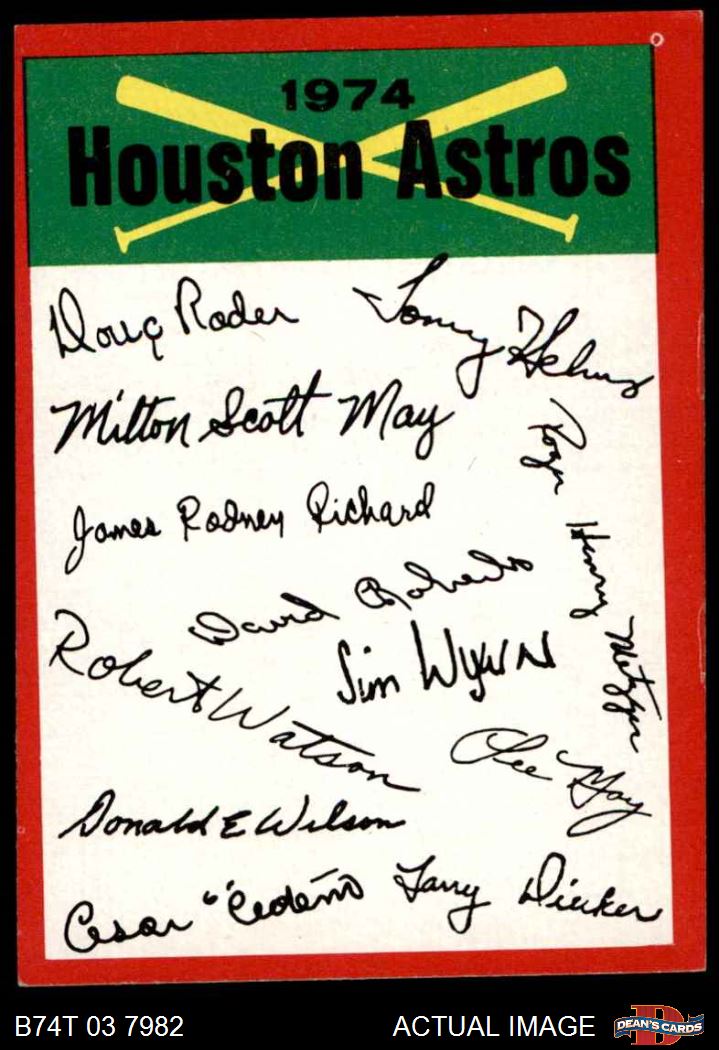 1974
Houston Astros
Doug Rader
Tommy Helms
Milton Scott May
Roger Henry Metzger
James Rodney Richard
David Roberts
Robert Watson
Jim Wynn
Lee May
Donald E Wilson
Cesar "Cedeño
Larry Dierker
B74T 03 7982
ACTUAL IMAGE
D
DEAN'S CARDS